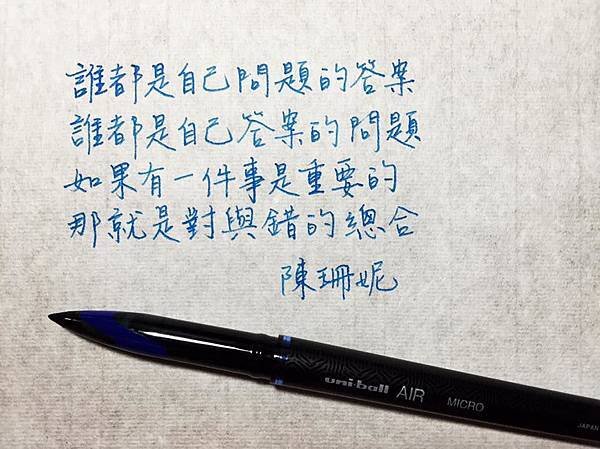 誰都是自己問題的答案
誰都是自己答案的問題
如果有一件事是重要的
那就是對與錯的總合
陳珊妮
uni-ball AIR MICRO JAPAN